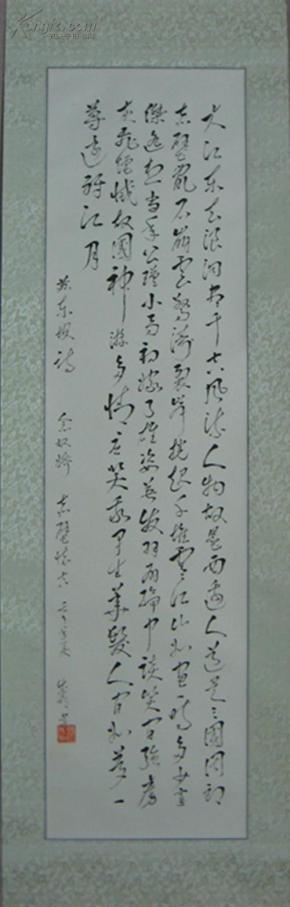 大江东去浪淘尽千古风流人物故垒西边人道是三国周郎
赤壁乱石崩云惊涛裂岸捲起千堆雪江山如画一时多少豪
傑遥想当年公瑾小乔初嫁了雄姿英发羽扇纶巾谈笑间强虏
灰飞烟灭故国神游多情应笑我早生华髮人间如梦一
尊还酹江月
苏东坡诗 念奴娇 赤壁怀古